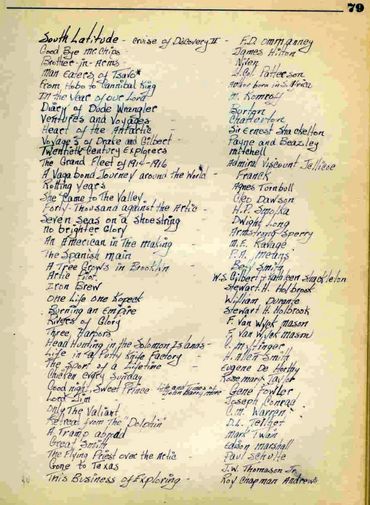 79
South Latitude - cruise of Discovery II - F.D. ommanney
Good Bye Mr. Chips - James Hilton
Brother-in-Arms - Nolen
Man Eaters of Tsavo - Lt. Col. Patterson
From Hobo to Cannibal King
In the Year of our Lord - M. Komroff
Diary of Dude Wrangler - Burton
Ventures and Voyages - Chatterton
Heart of the Antartic - Sir Ernest Shackelton
Voyages of Drake and Gilbert - Payne and Beazley
Twentieth Century Explorers - Mitchell
The Grand Fleet of 1914-1916 - Admiral Viscount Jellicoe
A Vagabond Journey around the World - Franck
Rolling Years - Agnes Turnbull
She Came to The Valley - Cleo Dawson
Forty-Thousand against the Artic - H.P. Smolka
Seven Seas on a Shoestring - Dwight Long
No brighter Glory - Armstrong Sperry
An American in the making - M.E. Ravage
The Spanish main - P.A. Means
A Tree Grows in Brooklyn - Betty Smith
Artic Pilot - W.S. Gilbert - Kathleen Shackleton
Iron Brew - Stewart H. Holbrook
One Life one Kopeck - William Duranty
Burning an Empire - Stewart H. Holbrook
Rivers of Glory - F. Van Wyck Mason
Three Harbors - F. Van Wyck Mason
Head Hunting in the Solomon Islands - C. Mytinger
Life in a Putty Knife Factory - H. Allen Smith
The Sport of a Lifetime - Eugene
Chicken every Sunday - Rosemary Taylor
Good night, Sweet Prince - Life and Times of John Barrymore - Gene Fowler
Lord Jim - Joseph Conrad
Only The Valiant - C.M. Warren
Retreat from the "Dolphin" - D.L. Teilhet
A Tramp abroad - Mark Twain
Great Smith - Edison Marshall
The Flying Priest over the Artic - Paul Schulte
Gone to Texas - J.W. Thomason Jr.
This Business of Exploring - Roy Chapman Andrews